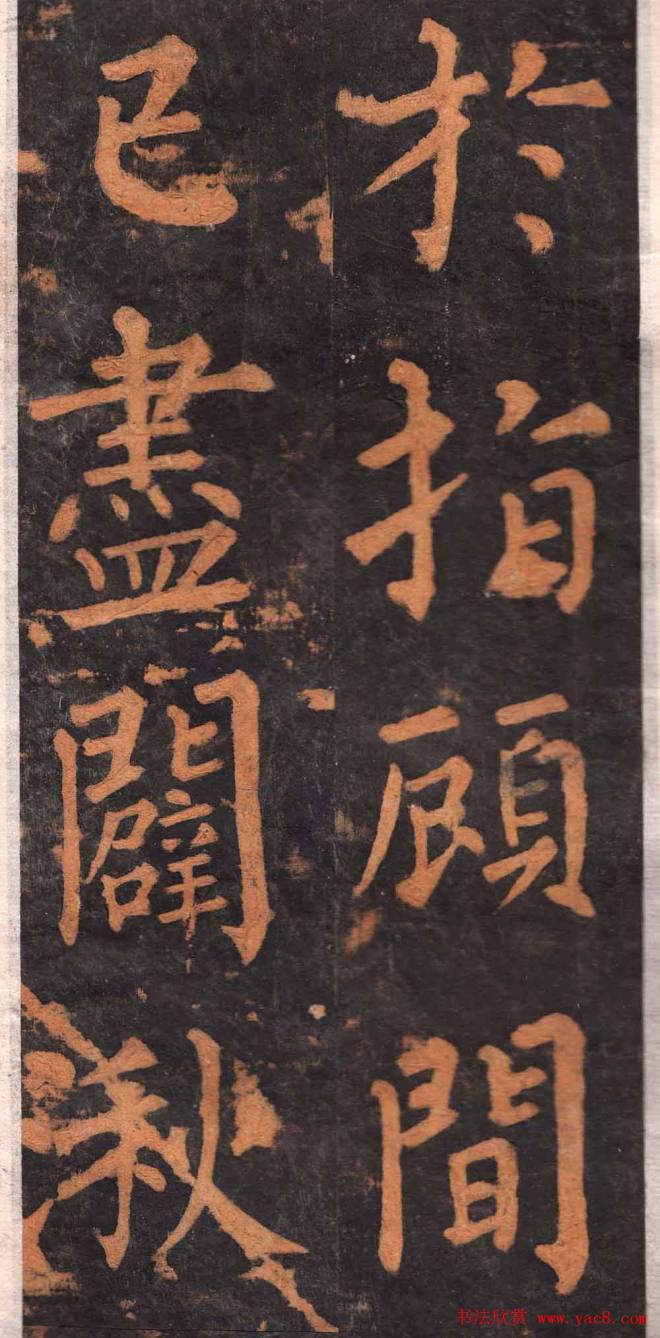 於指顧間
已盡闢秋
书法欣赏 www.yac8.com